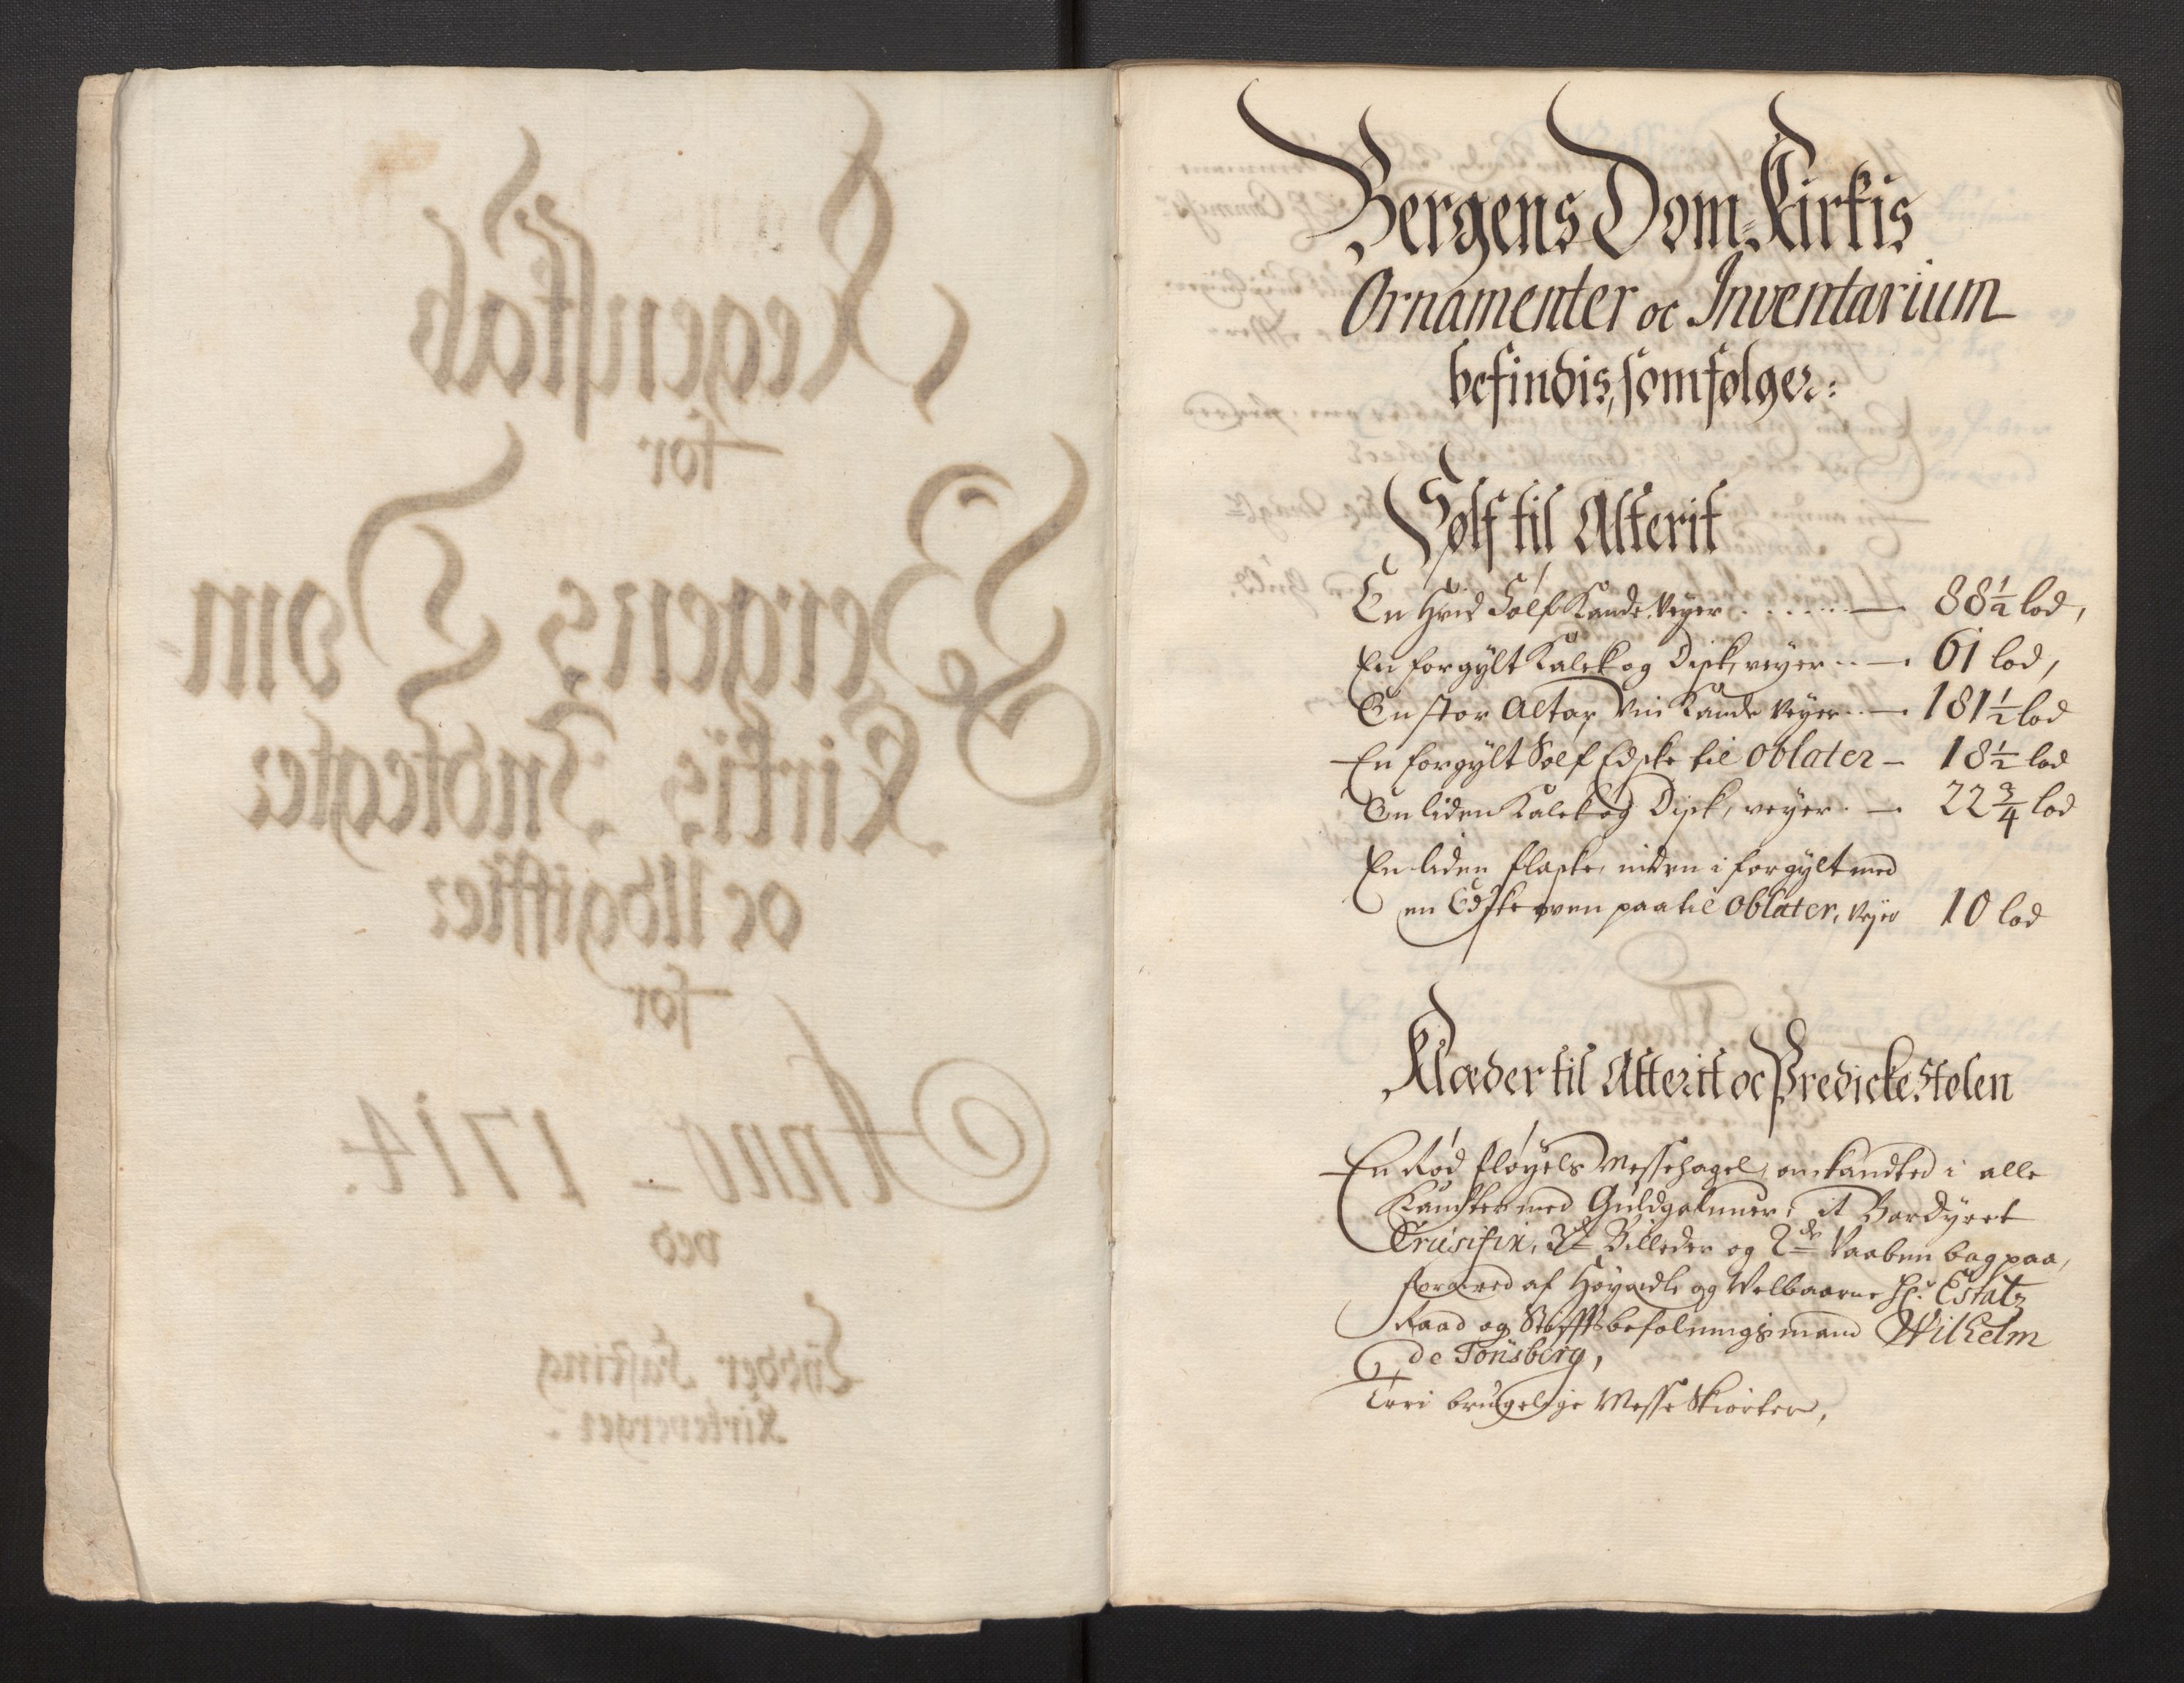 Regenskab
for
Bergens Dom-
Kirkis Indtegter
oc Udgiffter
for
Anno - 1714.
ved
Lyder Fasting
Kirkeverger.
Bergens Dom-Kirkis
Ornamenter oc Inventarium
befindis, som følger:
Sølf til Alterit
En Hvid Sølf Kande veyer . . . . . . — 88 1/2 lod,
En forgylt Kalck og Disk, veyer . . — 61 lod,
En stor Altar Vin Kande veyer . . — 181 1/2 lod
En forgylt Sølf Edske til Oblater — 18 1/2 lod
En liden Kalck og Disk, veyer . — 22 3/4 lod
En liden flaske, inden i forgylt med
en Edske oven paa til Oblater, veyer 10 lod
Klæder til Alterit oc Predicke Stolen
En Rød fløyels Messehagel, omkandted i alle
Kandter med Guldgaluner, it Bordyret
Crusifix, 3de Billeder og 2de Vaaben bag paa,
foræred af Høyædle og Velbaarne Hr. Estatz
Raad og Stifftsbefalningsmand Wilhelm
de Tonsberg,
Trei brugelige Messe Skiorter,